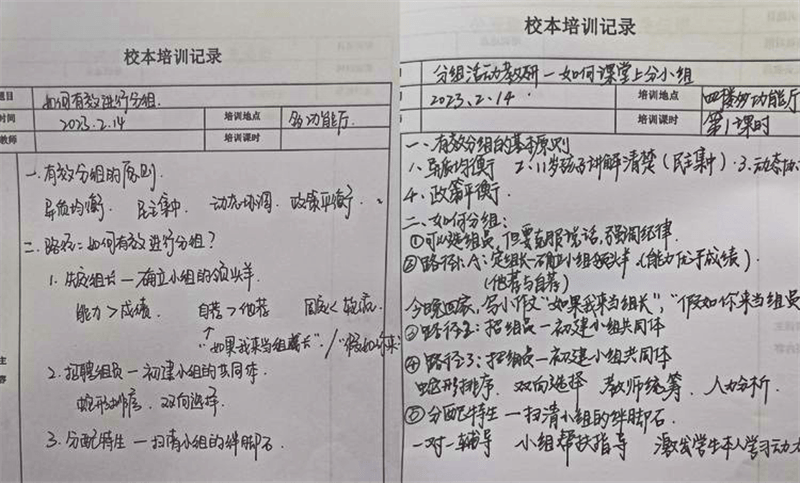 校本培训记录
题目 如何有效进行分组.
时间 2023.2.14 培训地点 多功能厅.
教师 培训课时
一.有效分组的原则.
异质均衡. 民主集中. 动态协调. 政策平衡.
二.路径:如何有效进行分组?
1. 组长一确立小组的领头羊.
能力>成绩 自荐>他荐
↑
"如果我来当组长"./"假如你来
2.招聘组员一初建小组的共同体.
蛇形排序. 双向选择.
3.分配特生一扫清小组的绊脚石.
校本培训记录
分组活动教研一如何课堂上分小组
2023.2.14 培训地点 四楼多功能厅
培训课时 第1课时
一、有效分组的基本原则
1、异质均衡 2、 讲解清楚(民主集中).3、动态
4、政策平衡.
二、如何分组:
①可以选组员,但要克服说话,强调纪律.
②路径1.A:定组长一确立小组领头羊.(能力优于成绩).
(他荐与自荐)
今晚回家,写小作文"如果我来当组长","假如你来当组员
③路径2:招组员一初建小组共同体
④路径3:招组员一初建小组共同体
蛇形排序. 双向选择 教师统筹. 人力分析.
⑤分配特生一扫清小组的绊脚石.
一对一辅导 小组帮扶指导 激发学生本人学习动力